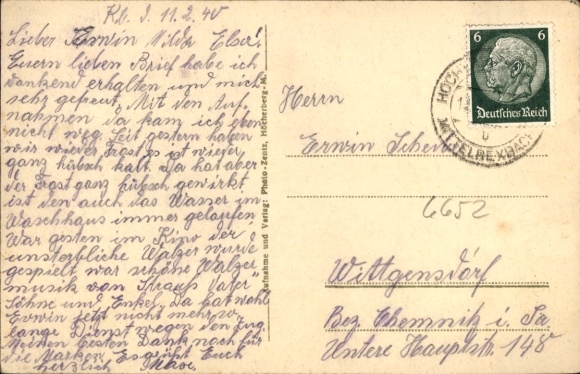 Kb. d. 11.2.40
Lieber Erwin Hilde Else!
Euern lieben Brief habe ich
dankend erhalten und mich
sehr gefreut. Mit den Auf-
nahmen da kam ich eben
nicht weg. Seit gestern haben
wir wieder Frost es ist wieder
ganz hübsch kalt. Da hat aber
der Frost ganz hübsch gewirkt
ist den auch das Wasser im
Waschhaus immer gelaufen.
War gesten im Kino der
unsterbliche Walzer wurde
gespielt war schöne Walzer
musik von Strauß Vater
Söhne und Enkel. Da hat wohl
Erwin jetzt nicht mehr so
lange Dienst wegen den Zug.
Meinen besten Dank noch für
die Marken. Es grüßt Euch
herzlich
Aufnahme und Verlag: Photo-Zentr, Höcherberg-M.
6 6
Deutsches Reich
MITTELBEXBACH
Herrn
Erwin
6652
Wittgensdorf
Bez. Chemnitz i. Sa
Untere Hauptstr. 148